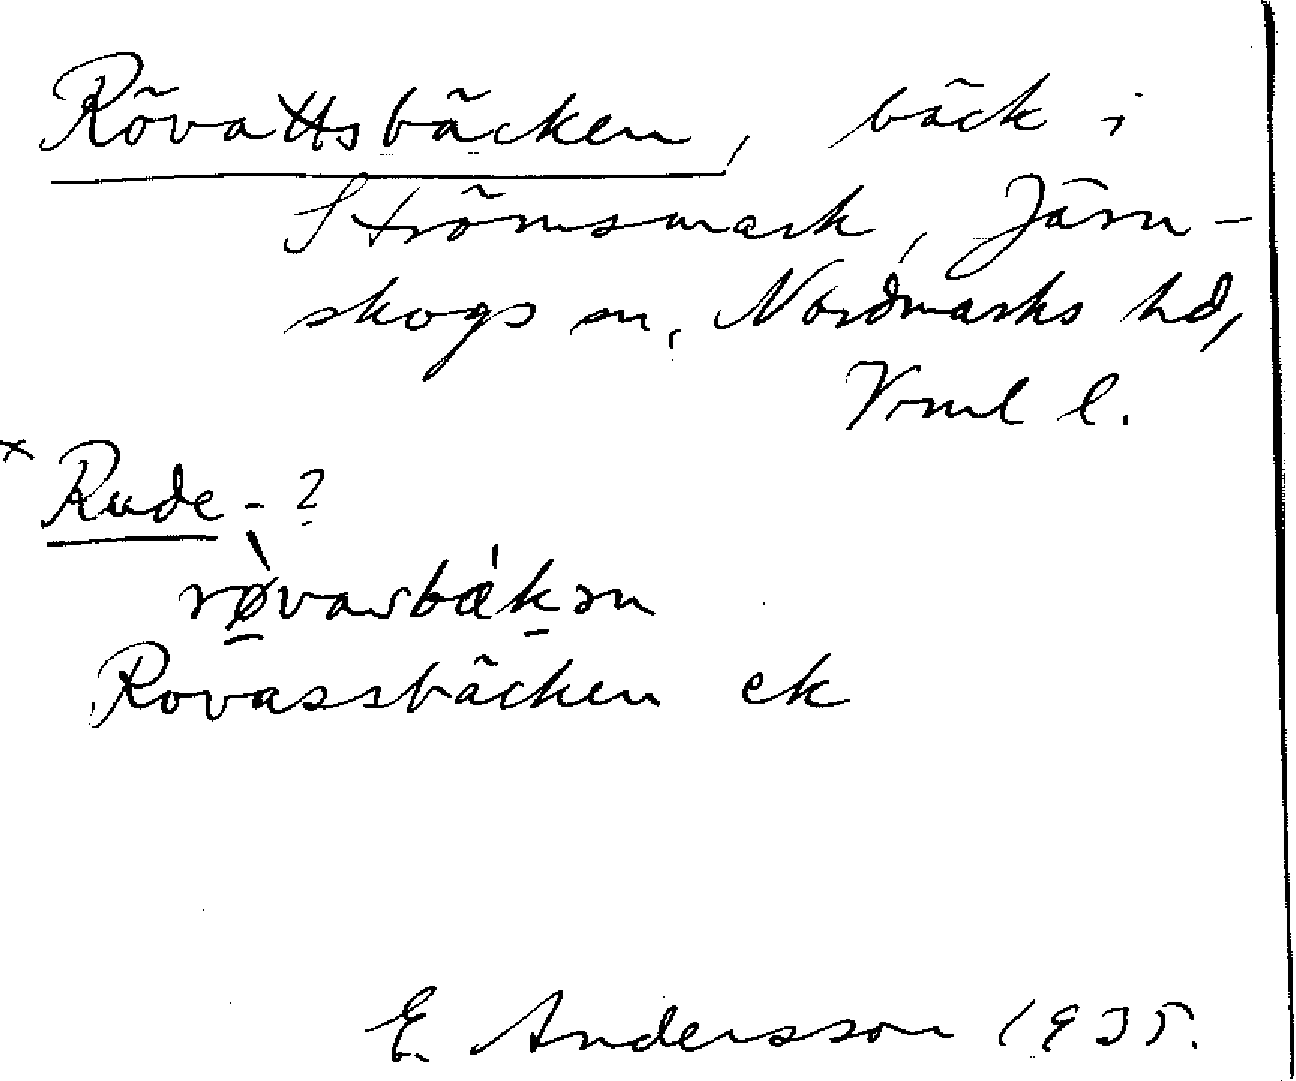 Rövattsbäcken, bäck i
Strömsmark, Järn-
skogs sn, Nordmarks hd,
Vrml l.
x Rude - ?
Rovassbäcken ek
E. Andersson 1935.